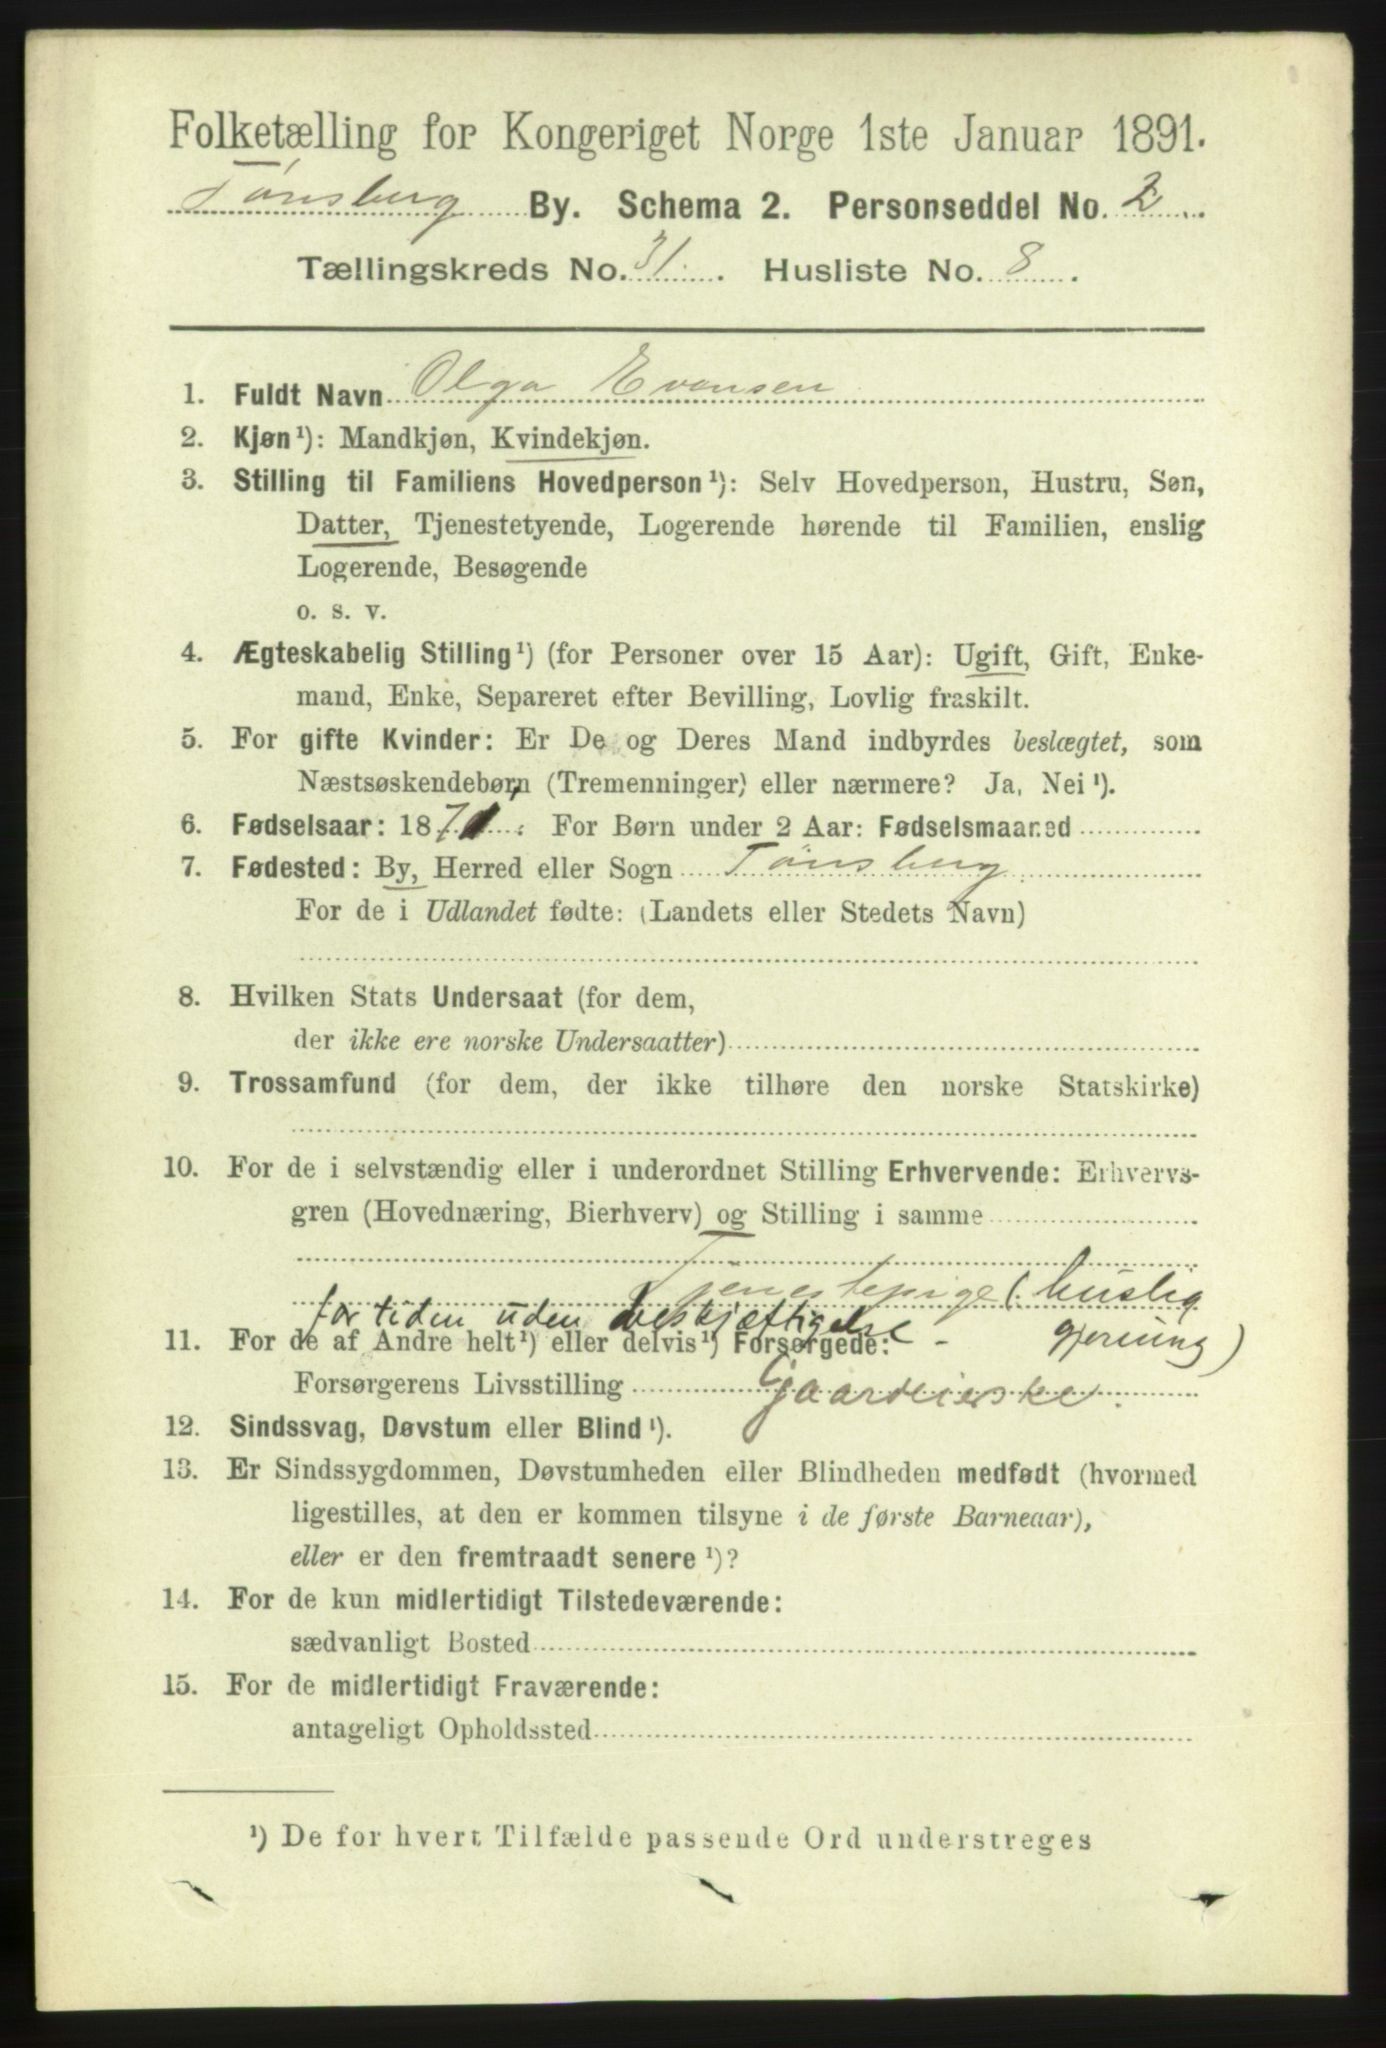 Folketælling for Kongeriget Norge 1ste Januar 1891.
Tønsberg By. Schema 2. Personseddel No. 2
Tællingskreds No. 31. Husliste No. 8.
1. Fuldt Navn Olga Evensen
2. Kjøn¹): Mandkjøn, Kvindekjøn.
3. Stilling til Familiens Hovedperson¹): Selv Hovedperson, Hustru, Søn,
Datter, Tjenestetyende, Logerende hørende til Familien, enslig
Logerende, Besøgende
o. s. v.
4. Ægteskabelig Stilling¹) (for Personer over 15 Aar): Ugift, Gift, Enke-
mand, Enke, Separeret efter Bevilling, Lovlig fraskilt.
5. For gifte Kvinder: Er De og Deres Mand indbyrdes beslægtet, som
Næstsøskendebørn (Tremenninger) eller nærmere? Ja, Nei¹).
6. Fødselsaar: 1871. For Børn under 2 Aar: Fødselsmaaned
7. Fødested: By, Herred eller Sogn Tønsberg
For de i Udlandet fødte: (Landets eller Stedets Navn)
8. Hvilken Stats Undersaat (for dem,
der ikke ere norske Undersaatter)
9. Trossamfund (for dem, der ikke tilhøre den norske Statskirke)
10. For de i selvstændig eller i underordnet Stilling Erhvervende: Erhvervs-
gren (Hovednæring, Bierhverv) og Stilling i samme
Tjenestepige (huslig
for tiden uden beskjæftigelse - gjerning)
11. For de af Andre helt¹) eller delvis¹) Forsørgede:
Forsørgerens Livsstilling Gaardeierske.
12. Sindssvag, Døvstum eller Blind¹).
13. Er Sindssygdommen, Døvstumheden eller Blindheden medfødt (hvormed
ligestilles, at den er kommen tilsyne i de første Barneaar),
eller er den fremtraadt senere¹)?
14. For de kun midlertidigt Tilstedeværende:
sædvanligt Bosted
15. For de midlertidigt Fraværende:
antageligt Opholdssted
¹) De for hvert Tilfælde passende Ord understreges